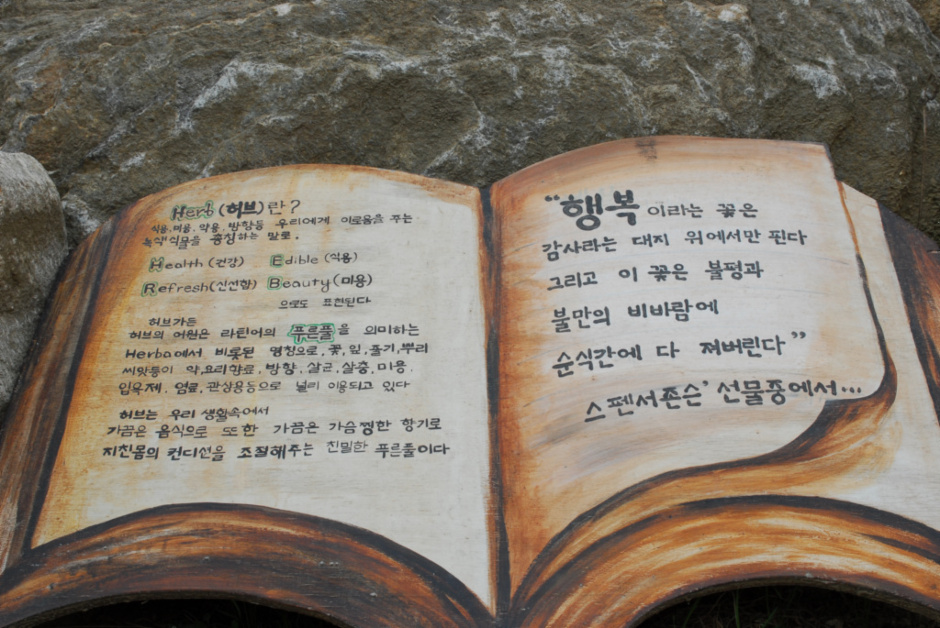 Herb (허브)란?
식용, 미용, 약용, 방향등 우리에게 이로움을 주는
녹색식물을 총칭하는 말로.
Health (건강) Edible (식용)
Refresh(신선함) Beauty(미용)
으로도 표현된다
허브가든
허브의 어원은 라틴어의 푸른풀을 의미하는
Herba에서 비롯된 명칭으로, 꽃, 잎, 줄기, 뿌리
씨앗등이 약, 요리향료, 방향, 살균, 살충, 미용.
입욕제, 염료, 관상용등으로 널리 이용되고 있다
허브는 우리 생활속에서
가끔은 음식으로 또한 가끔은 가슴찡한 향기로
지친몸의 컨디션을 조절해주는 친밀한 푸른풀이다
"행복이라는 꽃은
감사라는 대지 위에서만 핀다
그리고 이 꽃은 불평과
불만의 비바람에
순식간에 다 져버린다"
스펜서존슨' 선물중에서...